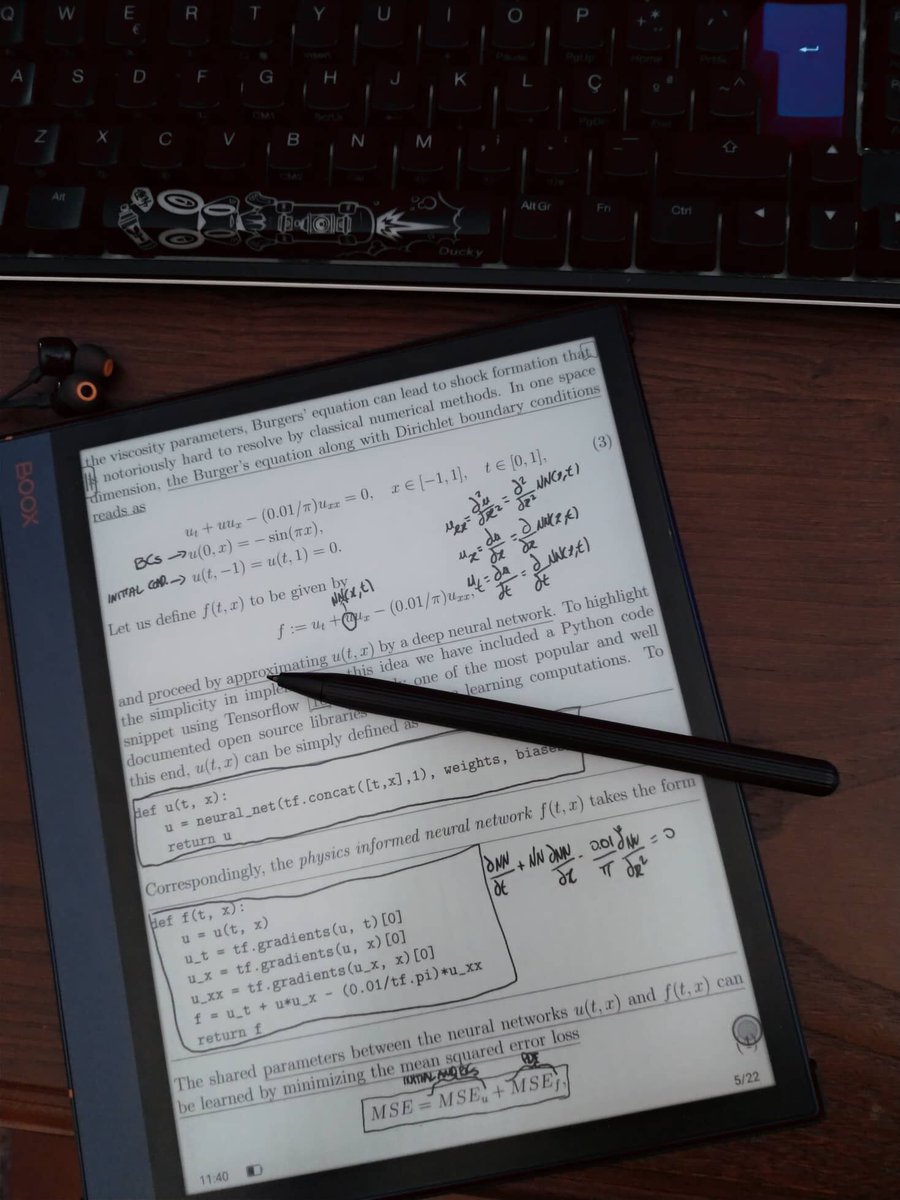 Q W E R T Y U I O P
A S D F G H J K L Ç
Z X C V B N M
Alt
Alt Gr Fn Ctrl
Ducky
BOOX
the viscosity parameters, Burgers' equation can lead to shock formation that
is notoriously hard to resolve by classical numerical methods. In one space
dimension, the Burger's equation along with Dirichlet boundary conditions
reads as
(3)
u_t + uu_x − (0.01/π)u_xx = 0, x ∈ [−1, 1], t ∈ [0, 1],
BCs → u(0, x) = − sin(πx),
INITIAL COND. → u(t, −1) = u(t, 1) = 0.
u_xx = ∂²u/∂x² = ∂²/∂x² NN(x,t)
u_x = ∂u/∂x = ∂/∂x NN(x,t)
u_t = ∂u/∂t = ∂/∂t NN(x,t)
Let us define f(t, x) to be given by
NN(x,t)
f := u_t + uu_x − (0.01/π)u_xx,
and proceed by approximating u(t, x) by a deep neural network. To highlight
the simplicity in this idea we have included a Python code
snippet using Tensorflow one of the most popular and well
documented open source libraries learning computations. To
this end, u(t, x) can be simply defined as
def u(t, x):
u = neural_net(tf.concat([t,x],1), weights, biases
return u
Correspondingly, the physics informed neural network f(t, x) takes the form
def f(t, x):
u = u(t, x)
u_t = tf.gradients(u, t)[0]
u_x = tf.gradients(u, x)[0]
u_xx = tf.gradients(u_x, x)[0]
f = u_t + u*u_x - (0.01/tf.pi)*u_xx
return f
∂NN/∂t + NN ∂NN/∂x - 0.01/π ∂²NN/∂x² = 0
The shared parameters between the neural networks u(t, x) and f(t, x) can
be learned by minimizing the mean squared error loss
INITIAL AND BCS PDE
MSE = MSE_u + MSE_f,
5/22
11:40